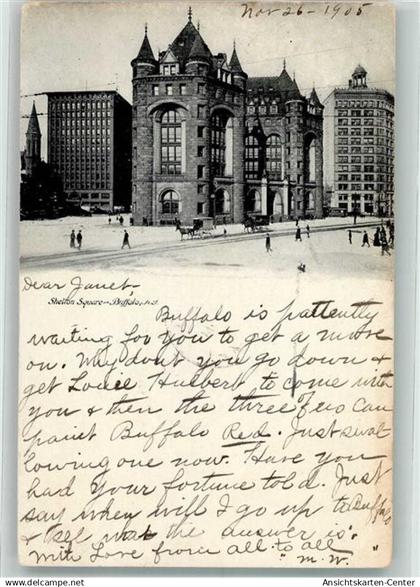 Nov 26 - 1905
Dear Janet,
Shelton Square - Buffalo, N.Y.
Buffalo is pattently
waiting for you to get a move
on. Why dont you go down &
get Louee Hulbert, to come with
you & then the three of us can
paint Buffalo Red. Just swal
lowing one now. Have you
had your fortune told. Just
say when will I go up to Buffalo
& see what the answer is.
With Love from all to all
M. W.
© Ansichtskarten-Center